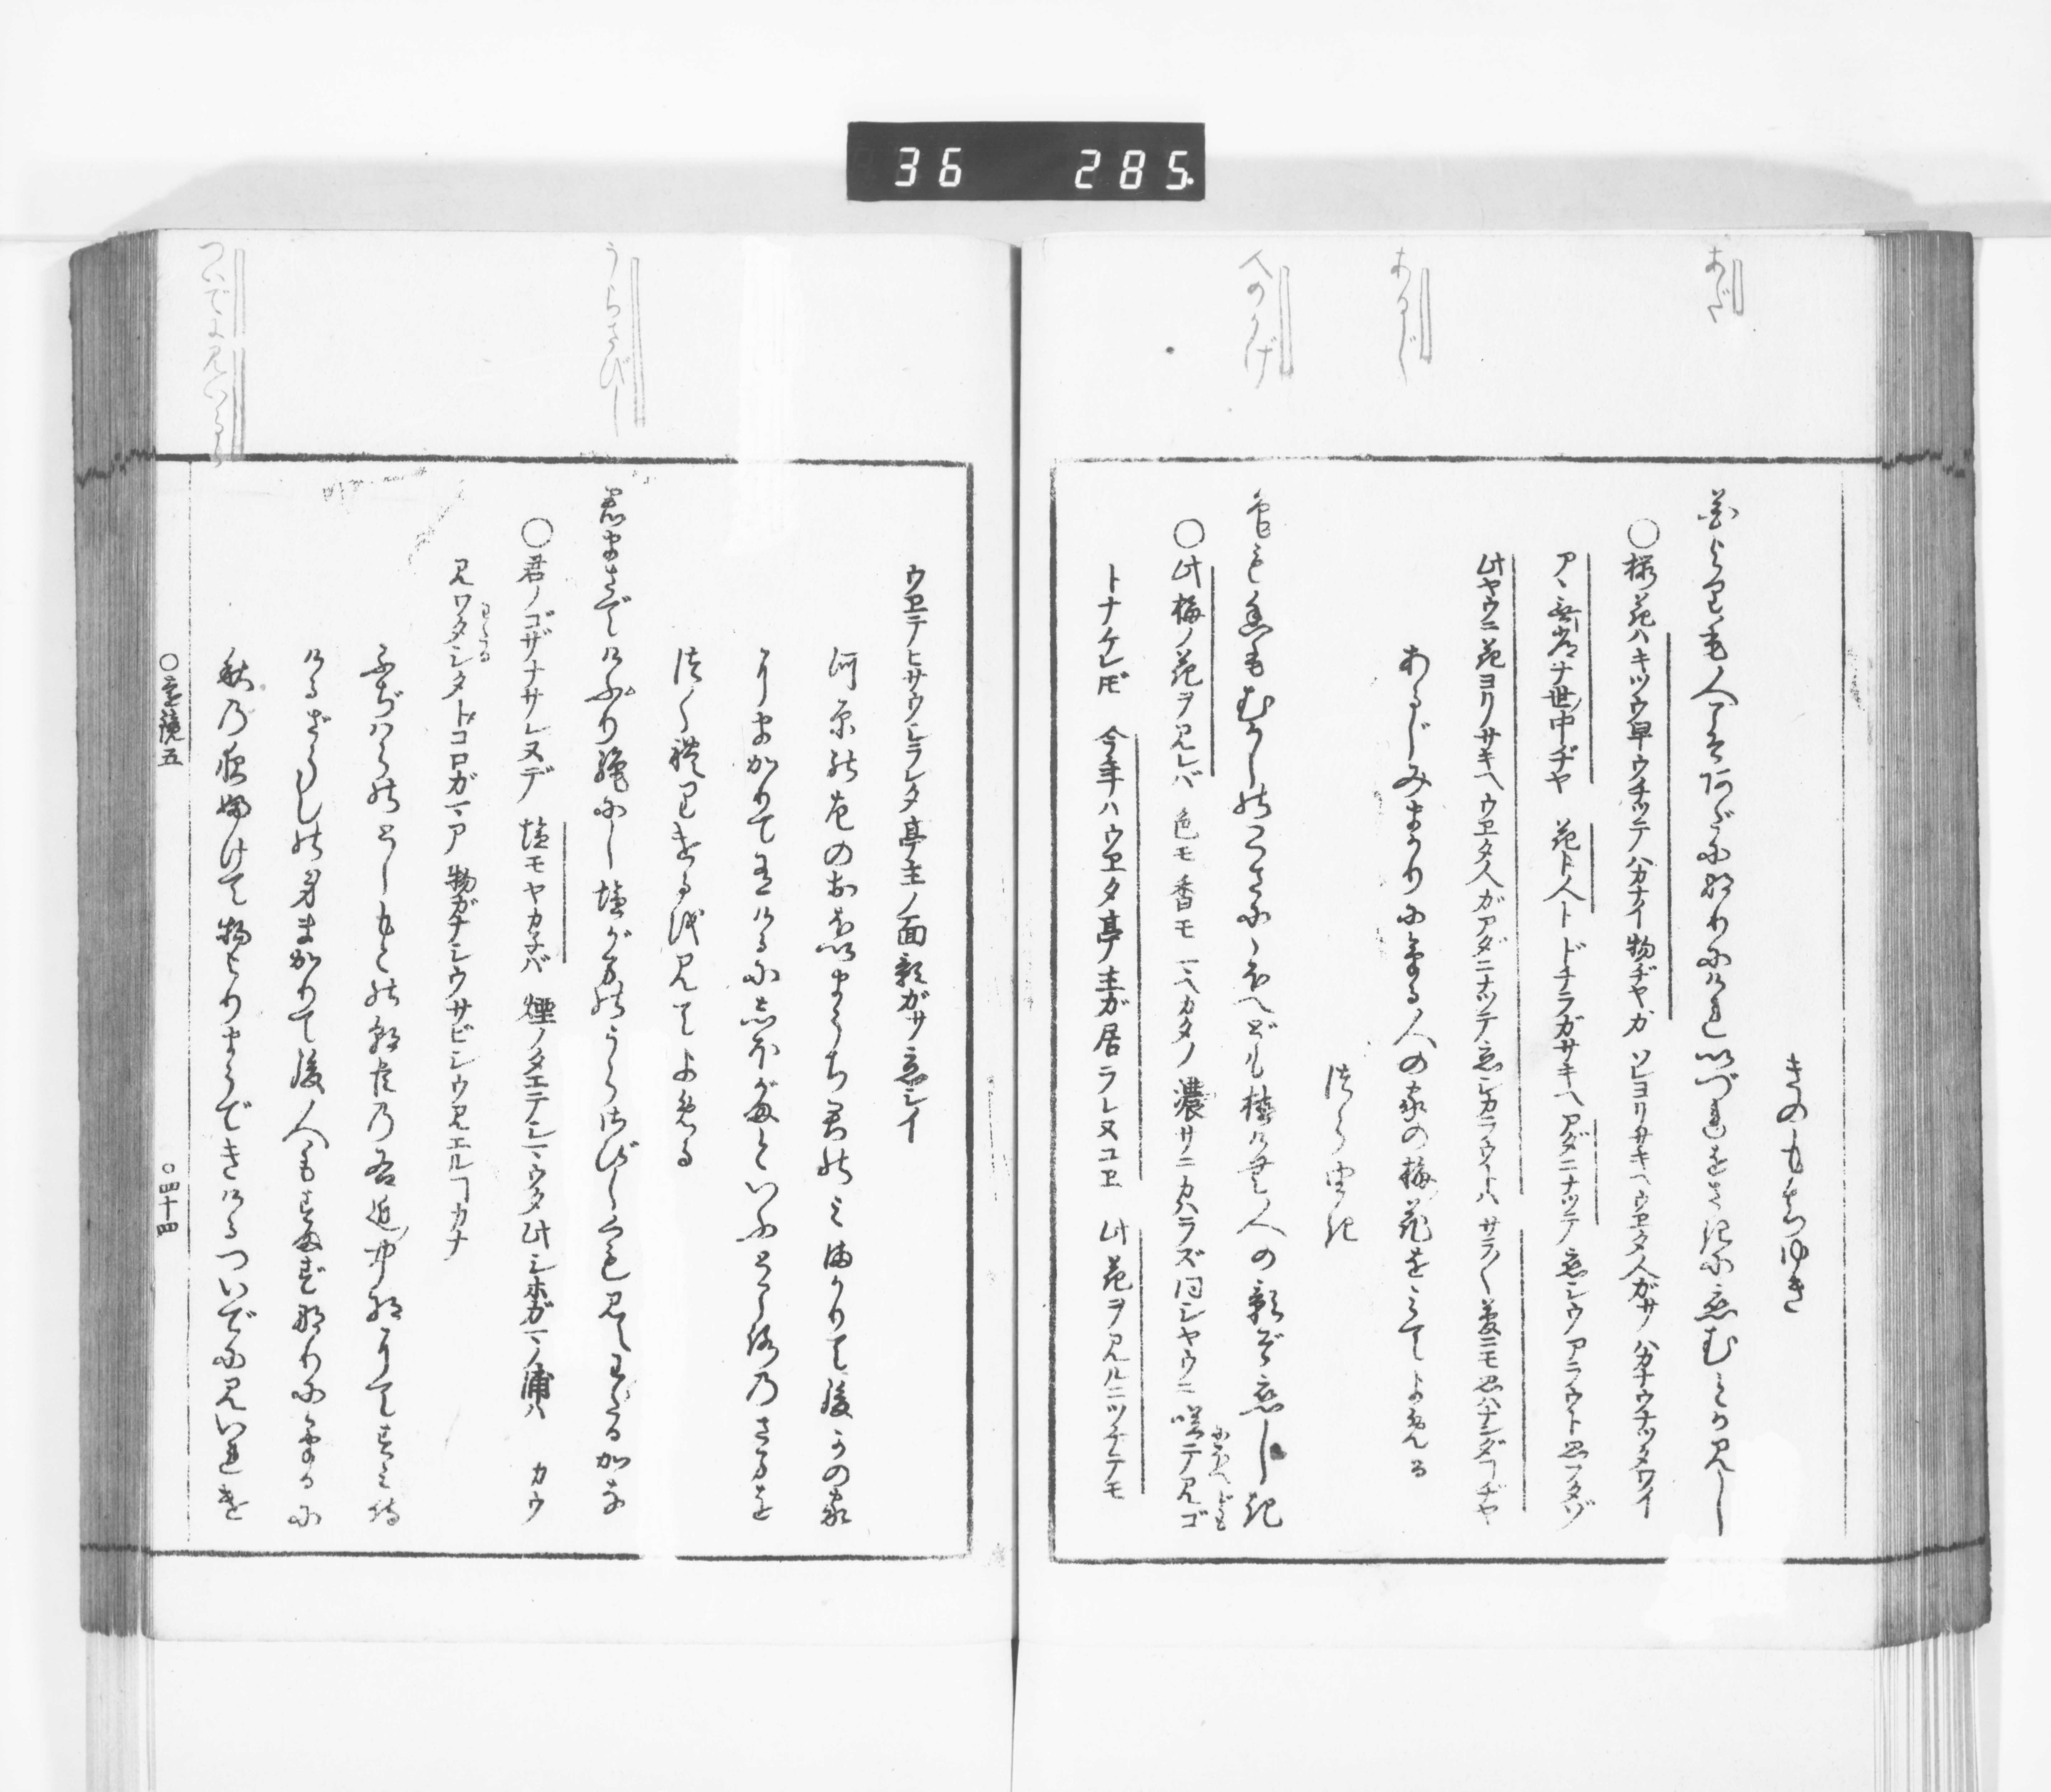 あだ
あるじ
人のかげ
きのもちゆき
花よりも人こそあだになりにけれいづれをさきに恋むとか見し
○桜花ハキツウ早ウチッテハカナイ物ヂヤガ ソレヨリサキヘウヱタ人ガサ ハカナウナッタワイ
アヽ無常ナ世中ヂヤ 花ト人ト ドチラガサキヘアダニナッテ 恋シウアラウト思フタゾ
此ヤウニ花ヨリサキヘウヱタ人ガアダニナッテ恋シカラウトハ サラ〳〵夢ニモ思ハナンダヿヂヤ
あるじみまかりにける人の家の梅花をみてよめる
つらゆき
色も香もむかしのこさににほへども植けむ人の影ぞ恋しき
○此梅ノ花ヲ見レバ 色モ香モ マヘカタノ濃サニカハラズ同シヤウニ咲テ見ゴ
にほへども
トナケレドモ 今年ハウヱタ亭主ガ居ラレヌユヱ 此花ヲ見ルニツケテモ
うらさびし
ついでに見いるゝ
ウヱテヒサウシラレタ亭主ノ面影ガサ恋シイ
河原の左のおほいまうち君のみまかりて後かの家
にまかりて有けるにしほがまといふところのさまを
つくれりけるを見てよめる
君まさでけふり絶にし塩がまのうらさびしくも見えわたるかな
○君ノゴザナサレヌデ 塩モヤカネバ 煙ノタエテシマウタ此シホガマノ浦ハ カウ
わたる
見ワタシタトコロガマア 物ガナシウサビシウ見エルヿカナ
ふぢはらのとしもとの朝臣の右近中将にてすみ侍
けるざうしの身まかりて後人もすまずなりにけるに
秋の夜ふけて物よりまうできけるついでに見いれけ
○遠鏡五 ○四十四
36 285